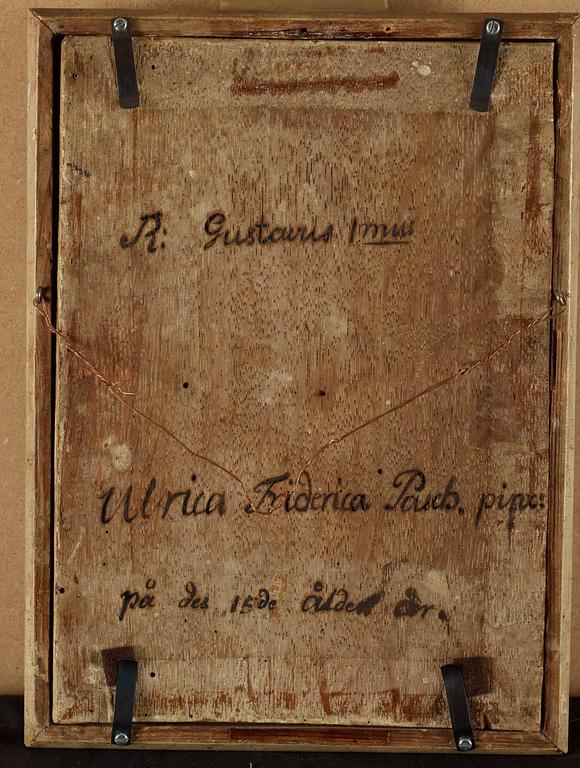 R: Gustavus 1mus
Ulrica Friderica Pasch. pinx:
på des 15de ålders år.